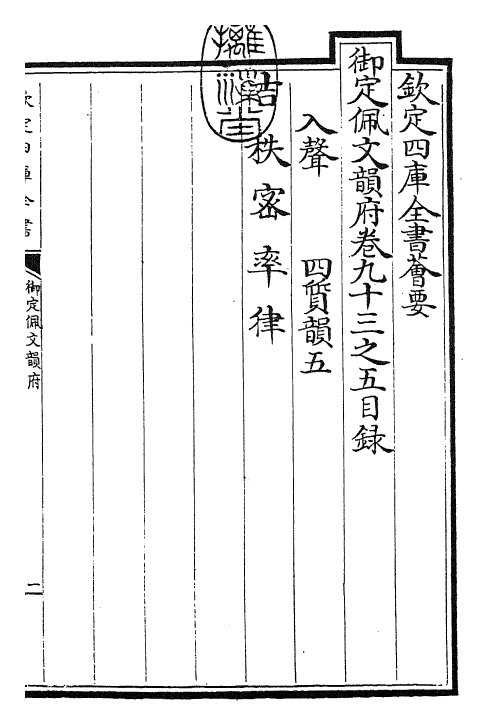 欽定四庫全書薈要
御定佩文韻府卷九十三之五目録
入聲
四質韻五
吉秩密率律
欽定四庫全書
御定佩文韻府
二